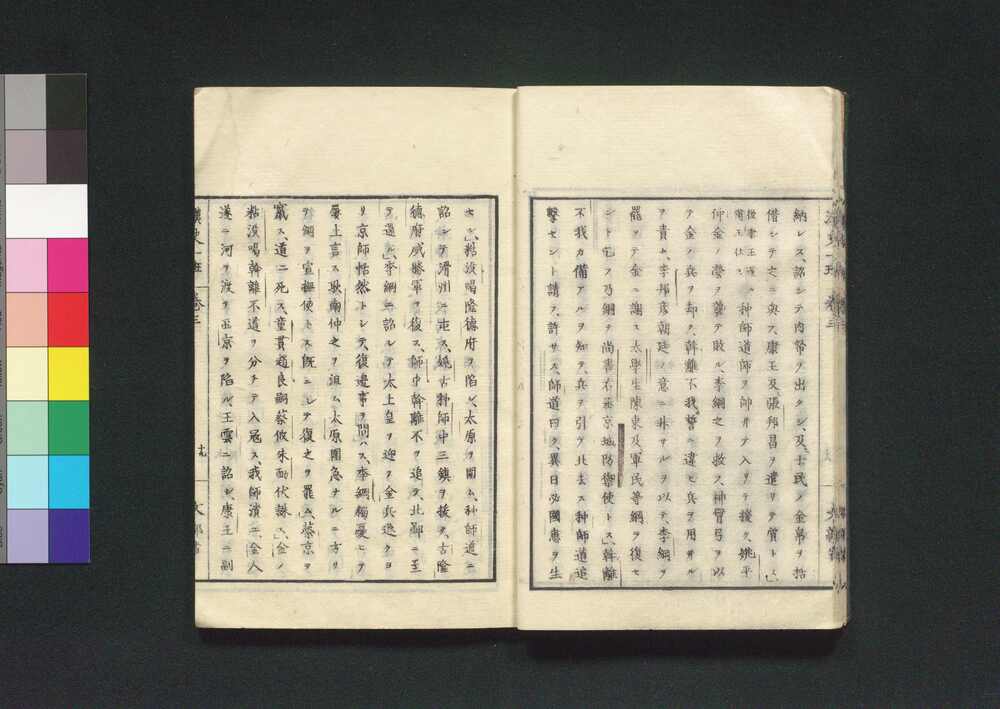 納レス、詔シテ内帑ヲ出タシ、及ヒ士民ノ金帛ヲ括
借シテ之ニ与ス、康王及張邦昌ヲ遣リテ質トス、
种師道師ヲ帥ヰテ入リテ援ク、姚平
仲金ノ営ヲ襲テ敗ル、李綱之ヲ救ス、神臂弓ヲ以
テ金ノ兵ヲ却ク、斡離不我誓ニ違ヒ兵ヲ用井ル
ヲ責ム、李邦彦朝廷ノ意ニ非サルヲ以テ、李綱ヲ
罷メテ金ニ謝ス、太学生陳東及軍民等綱ヲ復セ
ンヿヲ乞フ乃綱ヲ尚書右丞京城防禦使トス、斡離
不我カ備アルヲ知テ、兵ヲ引テ北去ス种師道追
撃セント請フ、許サス、師道曰ク異日必国患ヲ生
セン、粘没喝隆徳府ヲ陥ル、太原ヲ囲ム、种師道ニ
詔シテ滑州ニ屯ス、姚古种師中三鎮ヲ援ク、古隆
徳府威勝軍ヲ復ス、師中斡離不ヲ追テ、北鄙ニ至
ヲ還ル、李綱ニ詔シテ太上皇ヲ迎ヲ金兵退クヨ
リ京師恬然トシテ、復辺事ヲ問ハス、李綱独憂ヒテ
屡上言ス耿南仲之ヲ沮ム、太原囲急ナルニ方リ
テ綱ヲ宣撫使トス既ニシテ復之ヲ罷ム、蔡京ヲ
竄ス、道ニ死ス、童貫趙良嗣蔡攸朱勔伏誅ス、金ノ
粘没喝斡離不道ヲ分チテ入寇ス我師潰ユ、金人
遂ニ河ヲ渡テ西京ヲ陥ル、王雲ニ詔シ康王ニ副
漢史一班 巻三